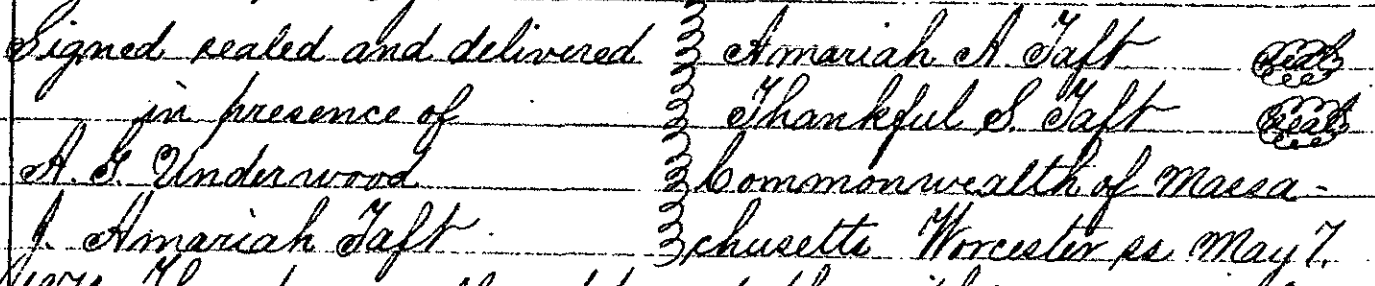 Signed sealed and delivered
in presence of
A. G. Underwood
J. Amariah Taft
Amariah A Taft seal
Thankful S. Taft seal
Commonwealth of Massa-
chusetts Worcester ss May 7.